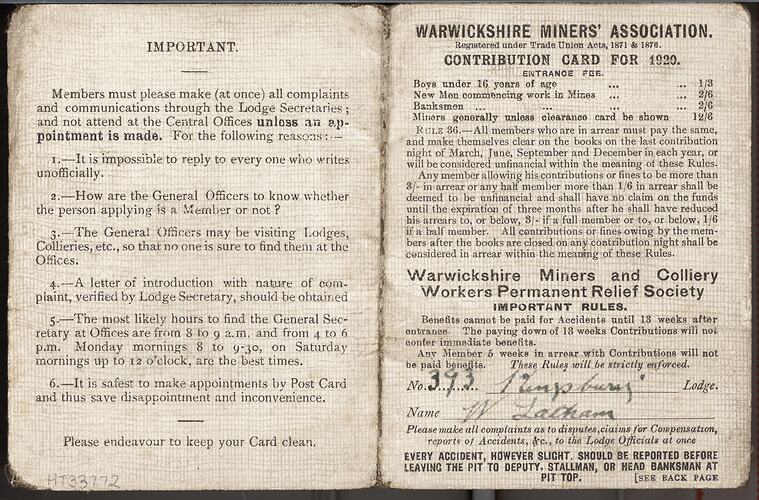 IMPORTANT.
Members must please make (at once) all complaints
and communications through the Lodge Secretaries ;
and not attend at the Central Offices unless an ap-
pointment is made. For the following reasons:—
1.—It is impossible to reply to every one who writes
unofficially.
2.—How are the General Officers to know whether
the person applying is a Member or not ?
3.—The General Officers may be visiting Lodges,
Collieries, etc., so that no one is sure to find them at the
Offices.
4.—A letter of introduction with nature of com-
plaint, verified by Lodge Secretary, should be obtained
5.—The most likely hours to find the General Sec-
retary at Offices are from 8 to 9 a.m. and from 4 to 6
p.m. Monday mornings 8 to 9-30, on Saturday
mornings up to 12 o'clock, are the best times.
6.—It is safest to make appointments by Post Card
and thus save disappointment and inconvenience.
Please endeavour to keep your Card clean.
HT33772
WARWICKSHIRE MINERS' ASSOCIATION.
Registered under Trade Union Acts, 1871 & 1876.
CONTRIBUTION CARD FOR 1920.
ENTRANCE FEE.
Boys under 16 years of age ... ... 1/3
New Men commencing work in Mines ... ... 2/6
Banksmen ... ... ... ... 2/6
Miners generally unless clearance card be shown 12/6
RULE 36.—All members who are in arrear must pay the same,
and make themselves clear on the books on the last contribution
night of March, June, September and December in each year, or
will be considered unfinancial within the meaning of these Rules.
Any member allowing his contributions or fines to be more than
3/- in arrear or any half member more than 1/6 in arrear shall be
deemed to be unfinancial and shall have no claim on the funds
until the expiration of three months after he shall have reduced
his arrears to, or below, 3/- if a full member or to, or below, 1/6
if a half member. All contributions or fines owing by the mem-
bers after the books are closed on any contribution night shall be
considered in arrear within the meaning of these Rules.
Warwickshire Miners and Colliery
Workers Permanent Relief Society
IMPORTANT RULES.
Benefits cannot be paid for Accidents until 13 weeks after
entrance. The paying down of 13 weeks Contributions will not
confer immediate benefits.
Any Member 5 weeks in arrear with Contributions will not
be paid benefits. These Rules will be strictly enforced.
No. 393 Kingsbury Lodge.
Name W Latham
Please make all complaints as to disputes, claims for Compensation,
reports of Accidents, &c., to the Lodge Officials at once
EVERY ACCIDENT, HOWEVER SLIGHT, SHOULD BE REPORTED BEFORE
LEAVING THE PIT TO DEPUTY, STALLMAN, OR HEAD BANKSMAN AT
PIT TOP. [SEE BACK PAGE